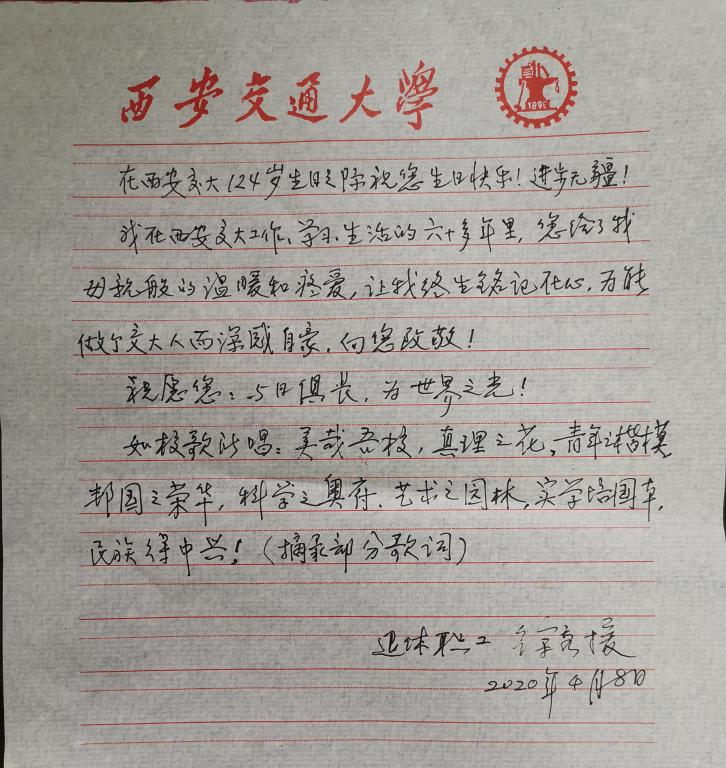 西安交通大學
1896
在西安交大124岁生日之际祝您生日快乐！进步无疆！
我在西安交大工作、学习、生活的六十多年里，您给了我
母亲般的温暖和疼爱，让我终生铭记在心，为能
做个交大人而深感自豪，向您致敬！
祝愿您：与日俱长，为世界之光！
如校歌所唱：美哉吾校，真理之花，青年之楷模
邦国之荣华，科学之奥府，艺术之园林，实学培国本，
民族得中兴！（摘录部分歌词）
退休职工
2020年4月8日